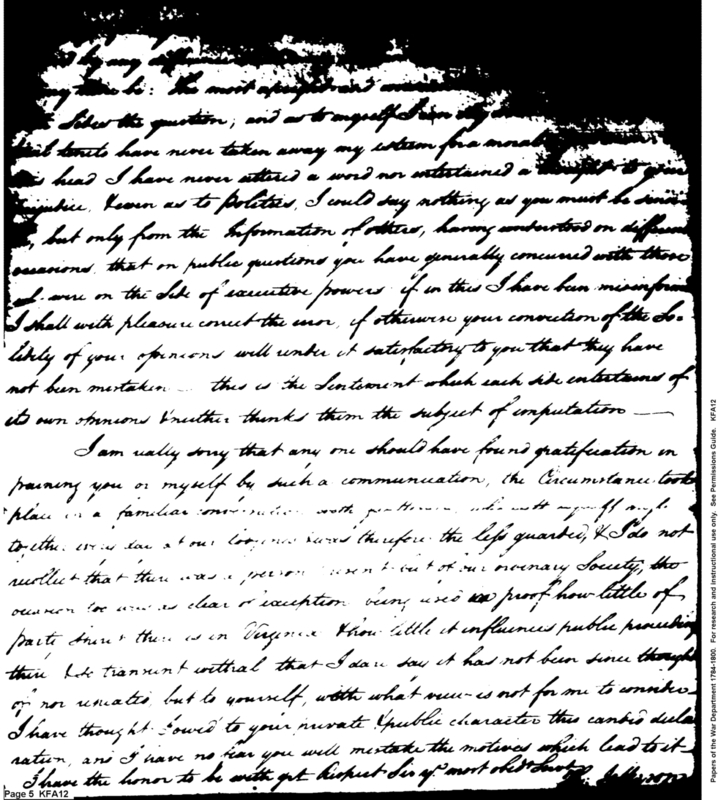 by any difference
be: The most upright and
Sides the question; and as to myself I can say
tenets have never taken away my esteem for a moral
head I have never uttered a word nor entertained a thought to your
& even as to Politics, I could say nothing as you must be
but only from the Information of others, having understood on different
occasions, that on public questions you have generally concurred with those
were on the Side of executive powers if in this I have been misinform
I shall with pleasure correct the error, if otherwise your conviction of the So=
lidity of your opinions will render it satisfactory to you that they have
not been mistaken — this is the Sentiment which each side entertains of
its own opinions & neither thinks them the subject of imputation —
I am really sorry that any one should have found gratification in
paining you or myself by such a communication, the Circumstance took
place in a familiar conversation with gentlemen, who
together every day at our lodgings & was therefore the less guarded, & I do not
recollect that there was a person present but of our ordinary Society, the
occasion too was as clear of exception being used in proof how little of
party spirit there is in Virginia & how little it influences public proceeding
there & so transient withal that I dare say it has not been since thought
of nor repeated, but to yourself, with what view is not for me to consider
I have thought I owed to your private & public character this candid decla
ration, and I have no fear you will mistake the motives which lead to it
I have the honor to be with gt. Respect Sir yr. most obedt Servt
Page 5 KFA12
Papers of the War Department 1784-1800. For research and instructional use only. See Permissions Guide. KFA12